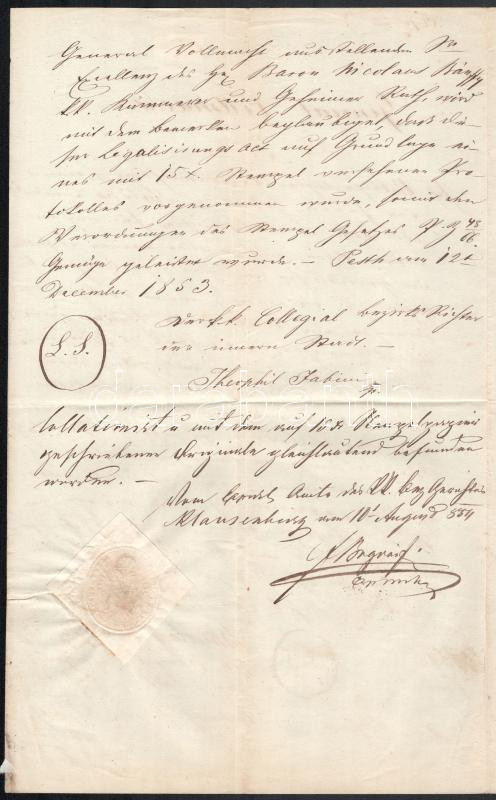 General Vollmacht ausstellenden Sr
Excellenz des H. Baron Nicolaus Bánffy
KK. Kämmerer und Geheimer Rath, wird
mit dem Bemerken beglaubiget, daß die-
ser Legalisirungs Act auf Grundlage ei-
nes mit 15x. Stempel versehenen Pro-
tokolles vorgenommen wurde, somit den
Verordnungen des Stempel Gesetzes P. Z
Genüge geleistet wurde. — Pesth am 12t
December 1853.
Der k.k. Collegial Bezirks Richter
der innern Stadt. —
L. S.
Theophil Fabini
Collationirt u mit dem auf Stempelpapier
geschriebenen Originale gleichlautend befunden
worden. —
Vom Amte des KK. Bez Gerichtes
Klausenburg am 10t August 854
darabanth